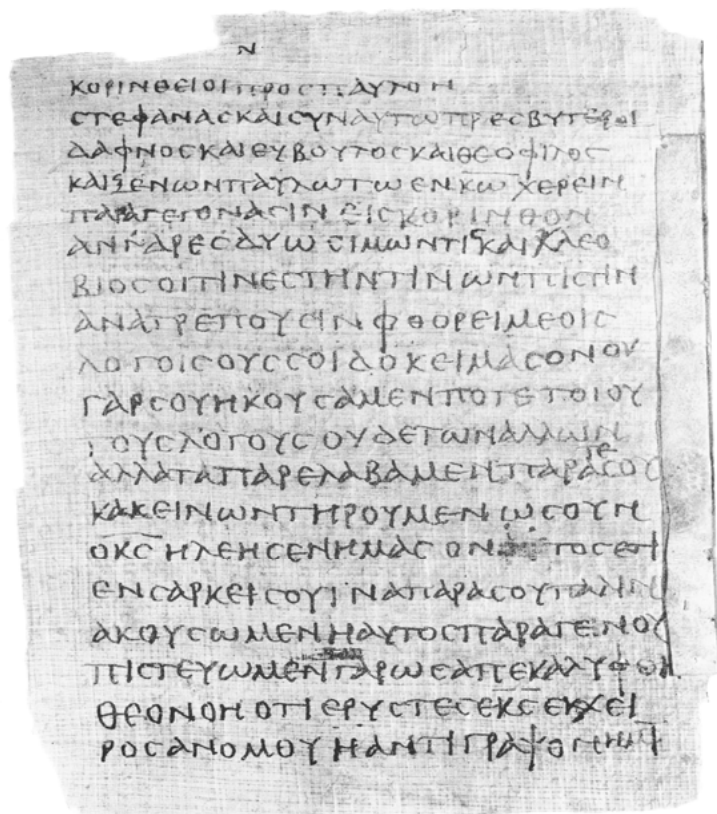 Ν
ΚΟΡΙΝΘΕΙΟΙΠΡΟΣΠΑΥΛΟΝ
ϹΤΕΦΑΝΑϹΚΑΙϹΥΝΑΥΤΩΠΡΕϹΒΥΤΕΡΟΙ
ΔΑΦΝΟϹΚΑΙΕΥΒΟΥΛΟϹΚΑΙΘΕΟΦΙΛΟϹ
ΚΑΙΞΕΝΩΝΠΑΥΛΩΤΩΕΝΚ̅Ω̅ΧΕΡΕΙΝ
ΠΑΡΑΓΕΓΟΝΑϹΙΝΕΙϹΚΟΡΙΝΘΟΝ
ΑΝΔΡΕϹΔΥΩϹΙΜΩΝΤΙϹΚΑΙΚΛΕΟ
ΒΙΟϹΟΙΤΙΝΕϹΤΗΝΤΙΝΩΝΠΙϹΤΙΝ
ΑΝΑΤΡΕΠΟΥϹΙΝΦΘΟΡΕΙΜΕΟΙϹ
ΛΟΓΟΙϹΟΥϹϹΟΙΔΟΚΕΙΜΑϹΟΝΟΥ
ΓΑΡϹΟΥΗΚΟΥϹΑΜΕΝΠΟΤΕΤΟΙΟΥ
ΤΟΥϹΛΟΓΟΥϹΟΥΔΕΤΩΝΑΛΛΩΝ
ΑΛΛΑΤΑΠΑΡΕΛΑΒΑΜΕΝΠΑΡΑΤΕϹΟΥ
ΚΑΚΕΙΝΩΝΤΗΡΟΥΜΕΝΩϹΟΥΝ
ΟΚ̅Ϲ̅ΗΛΕΗϹΕΝΗΜΑϹΟΝΤΟϹΕΤΙ
ΕΝϹΑΡΚΕΙϹΟΥΙΝΑΠΑΡΑϹΟΥΠΑΛΙΝ
ΑΚΟΥϹΩΜΕΝΗΑΥΤΟϹΠΑΡΑΓΕΝΟΥ
ΠΙϹΤΕΥΩΜΕΝΓΑΡΩϹΑΠΕΚΑΛΥΦΘΗ
ΘΕΟΝΟΗΟΤΙΕΡΥϹΤΕϹΕΚ̅Ϲ̅ΕΚΧΕΙ
ΡΟϹΑΝΟΜΟΥΗΑΝΤΙΓΡΑΨΟΝΗΜΙ